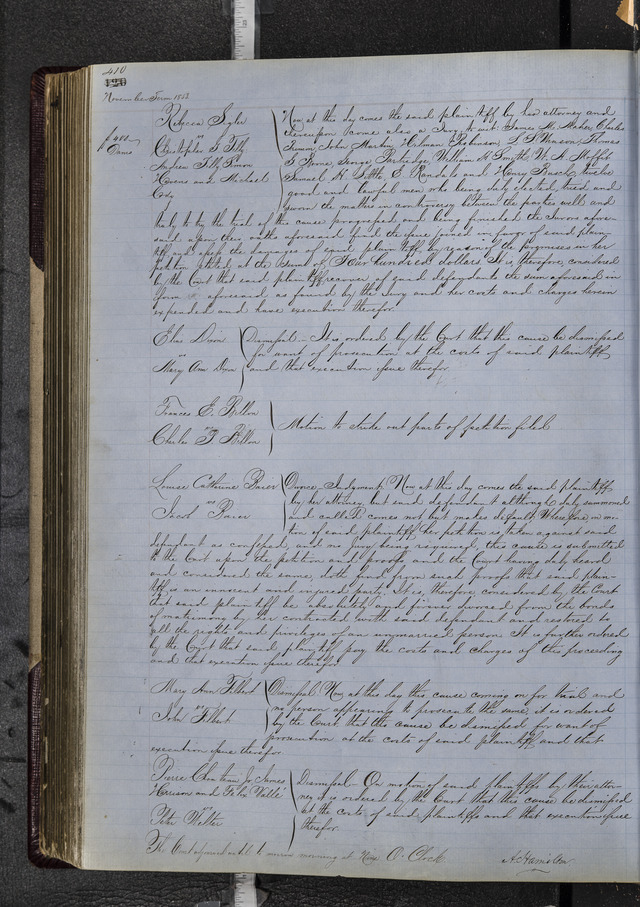 410
November Term 1853
Rebecca
vs
Christopher
Andrew Simon
Havens and Michael
$400
Dams
Now at this day comes the said plaintiff by her attorney and
thereupon come also a Jury to wit: James M. Charles
John Thomas
George Partridge, William H. Smith, W. A. Moffit
Samuel H. E. Randale and Henry twelve
good and lawful men who being duly elected, tried and
sworn the matters in controversy between the parties well and
truly to try the trial of this cause progressed and being finished the Jurors afore-
said upon their oaths aforesaid find the issue joined in favor of said plain-
tiff and assess the damages of said plaintiff by reason of the premises in her
petition stated at the sum of Four hundred dollars It is therefore considered
by the Court that said plaintiff recover against defendants the sum aforesaid in
form aforesaid as found by the Jury and her costs and charges herein
expended and have execution therefor.
vs
Mary Ann
Dismissal - It is ordered by the Court that this cause be dismissed
for want of prosecution at the costs of said plaintiff
and that execution issue therefor
Frances E. Billon
vs
Charles F. Billon
Motion to strike out parts of petition filed
Louise Catherine
vs
Jacob
Divorce, Judgment, Now at this day comes the said plaintiff
by her attorney, but said defendant although duly summoned
and called comes not but makes default, Wherefore on mo-
tion of said plaintiff her petition is taken against said
defendant as confessed, and no Jury being required, this cause is submitted
to the Court upon the petition and proofs and the Court having duly heard
and considered the same, doth find from said proofs that said plain-
tiff is an innocent and injured party. It is, therefore considered by the Court
that said plaintiff be absolutely and forever divorced from the bonds
of matrimony by her contracted with said defendant and restored to
all the rights and privileges of an unmarried person It is further ordered
by the Court that said plaintiff pay the costs and charges of this proceeding
and that execution issue therefor
Mary Ann
vs
John
Dismissal Now at this day this cause coming on for trial and
no person appearing to prosecute the same, it is ordered
by the Court that the cause be dismissed for want of
prosecution at the costs of said plaintiff, and that
execution issue therefor
Pierre Chouteau Jr James
Harrison and Felix Vallé
vs
Peter
Dismissal - On motion of said plaintiffs by their attor-
ney it is ordered by the Court that this cause be dismissed
at the costs of said plaintiffs and that execution issue
therefor.
The Court adjourned until to morrow morning at Nine O'Clock
A. Hamilton